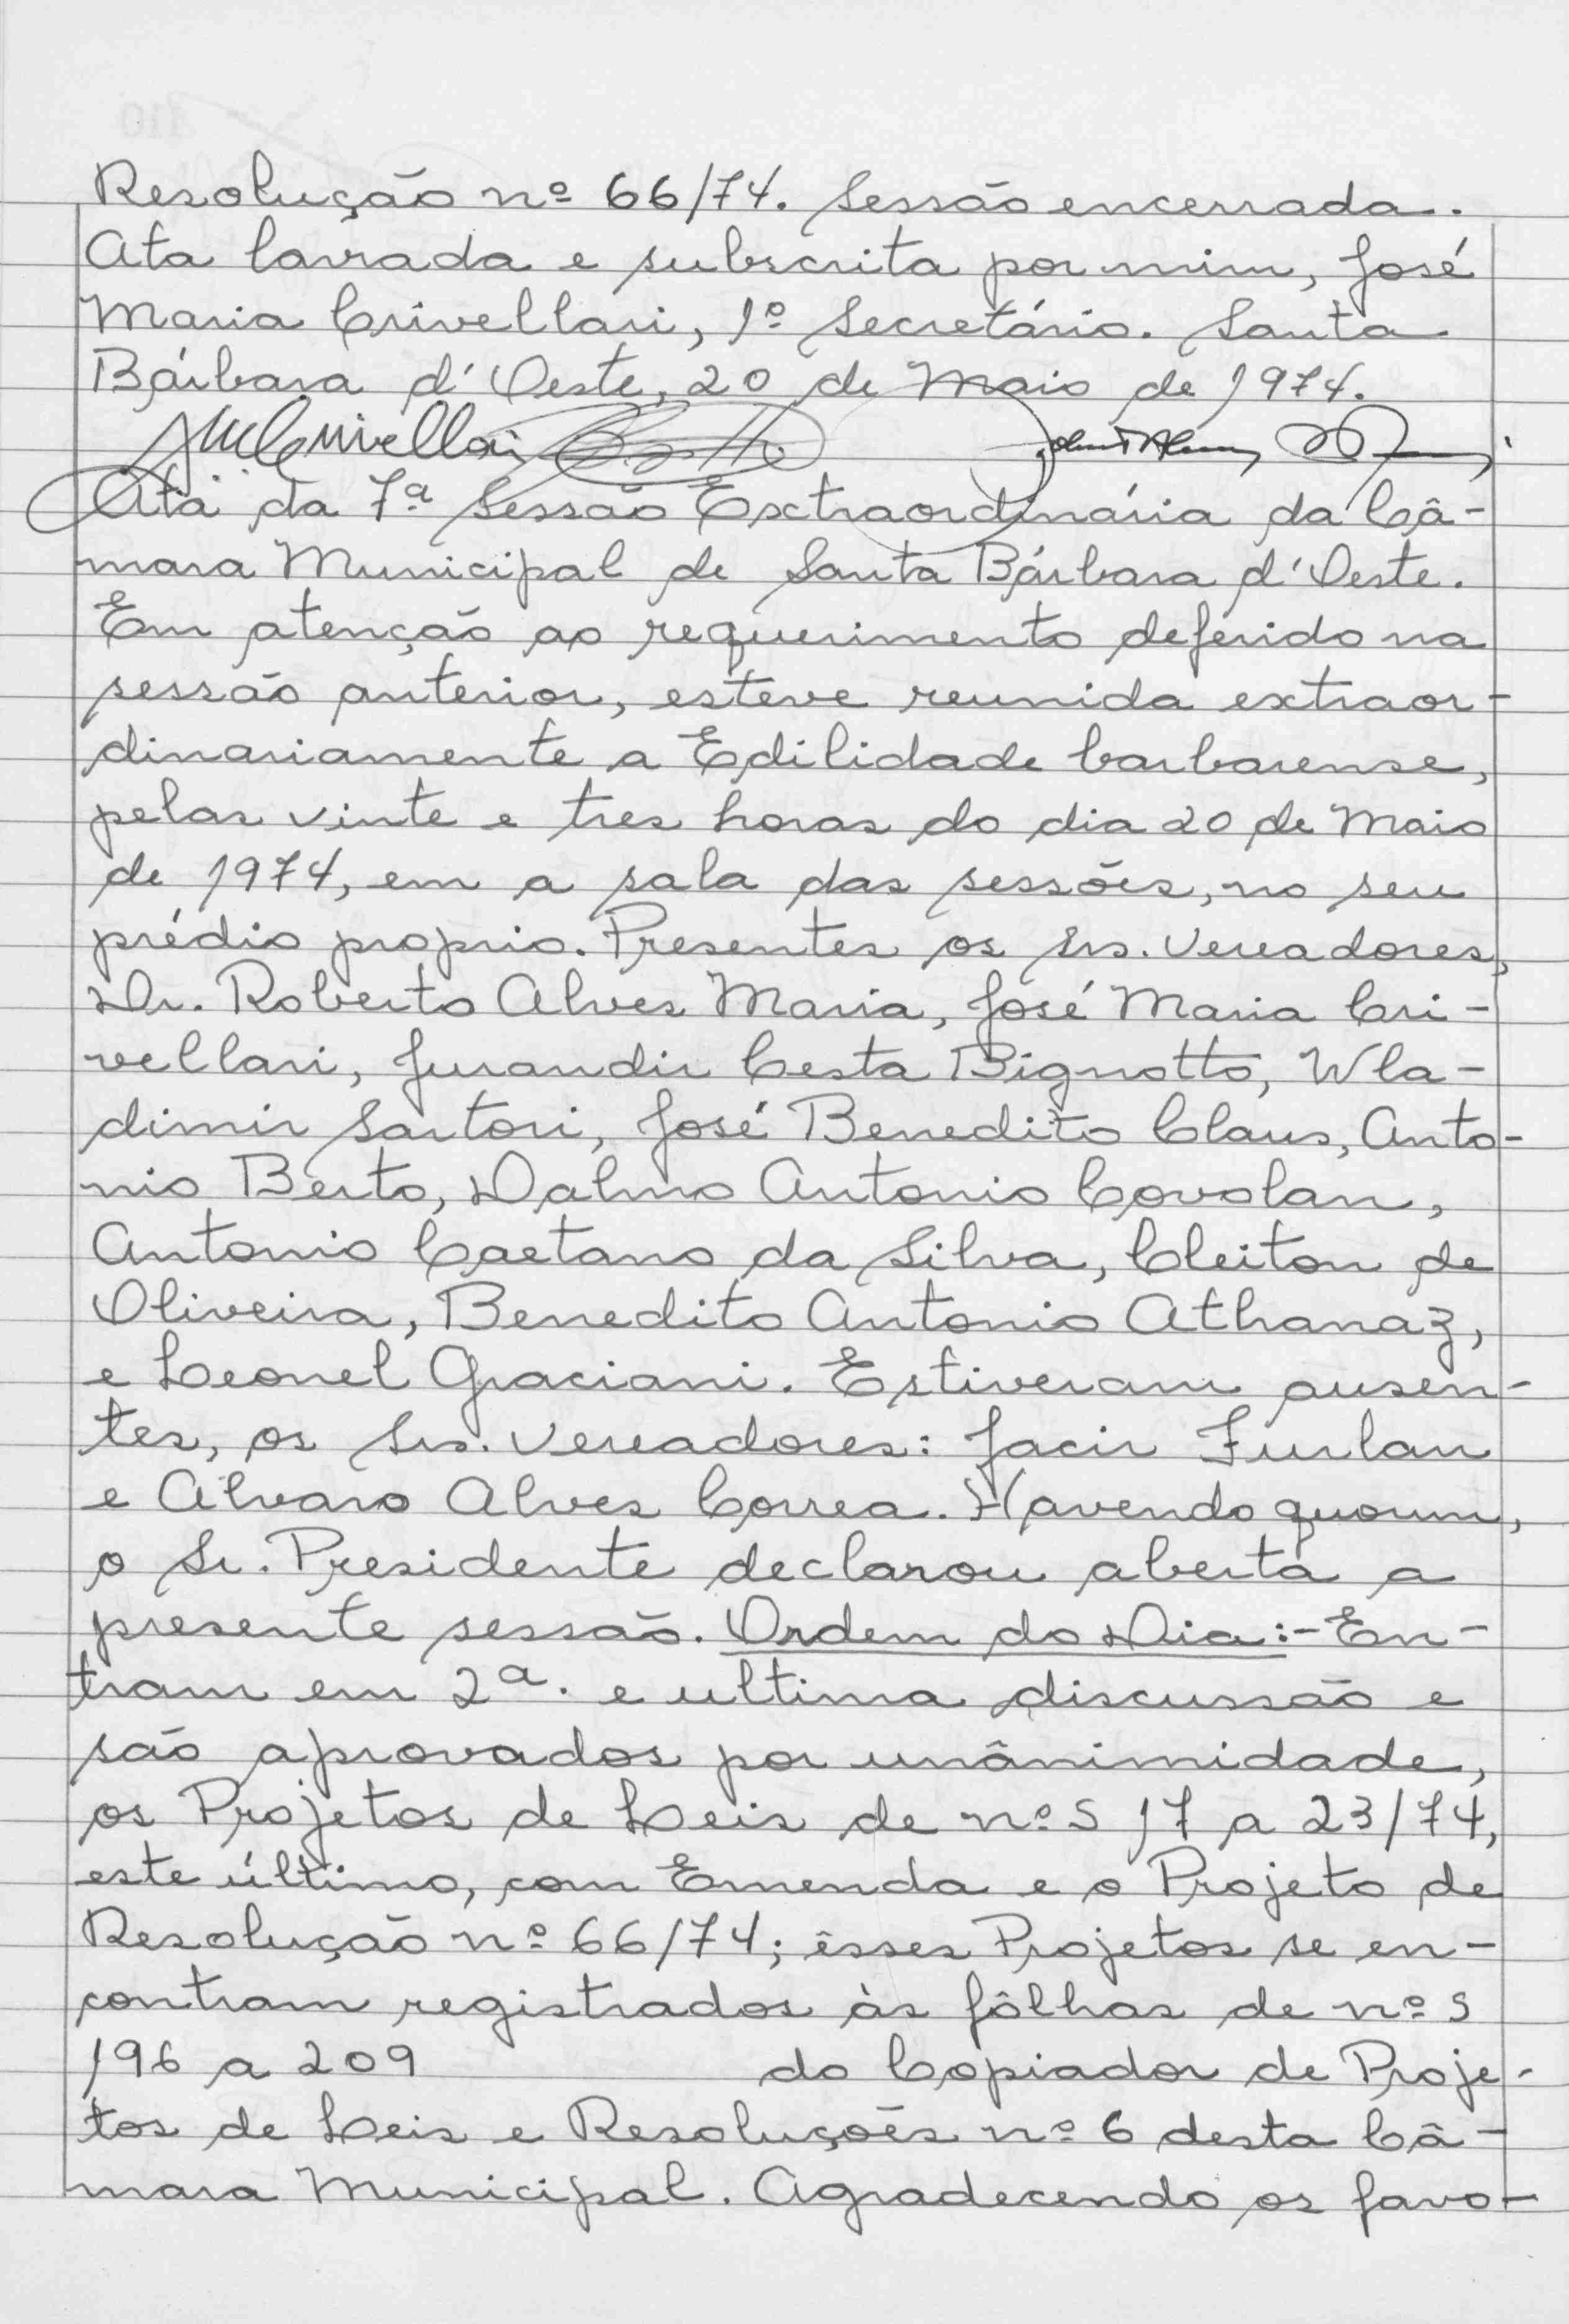 Resolução nº 66/74. Sessão encerrada.
Ata lavrada e subscrita por mim, José
Maria Crivellari, 1º Secretário. Santa
Bárbara d'Oeste, 20 de Maio de 1974.
JMCrivellari
Ata da 7ª Sessão Extraordinária da Câ-
mara Municipal de Santa Bárbara d'Oeste.
Em atenção ao requerimento deferido na
sessão anterior, esteve reunida extraor-
dinariamente a Edilidade barbarense,
pelas vinte e tres horas do dia 20 de Maio
de 1974, em a sala das sessões, no seu
prédio proprio. Presentes os Srs. Vereadores,
Dr. Roberto Alves Maria, José Maria Cri-
vellari, Jurandir Cesta Bignotto, Wla-
dimir Sartori, José Benedito Claus, Anto-
nio Berto, Dalmo Antonio Covolan,
Antonio Caetano da Silva, Cleiton de
Oliveira, Benedito Antonio Athanaz,
e Leonel Graciani. Estiveram ausen-
tes, os Srs. Vereadores: Jacir Furlan
e Alvaro Alves Correa. Havendo quorum,
o Sr. Presidente declarou aberta a
presente sessão. Ordem do Dia:- En-
tram em 2ª. e ultima discussão e
são aprovados por unânimidade,
os Projetos de Leis de nºs 17 a 23/74,
este último, com Emenda e o Projeto de
Resolução nº 66/74; êsses Projetos se en-
contram registrados às fôlhas de nºs
196 a 209 do Copiador de Proje-
tos de Leis e Resoluções nº 6 desta Câ-
mara Municipal. Agradecendo os favo-